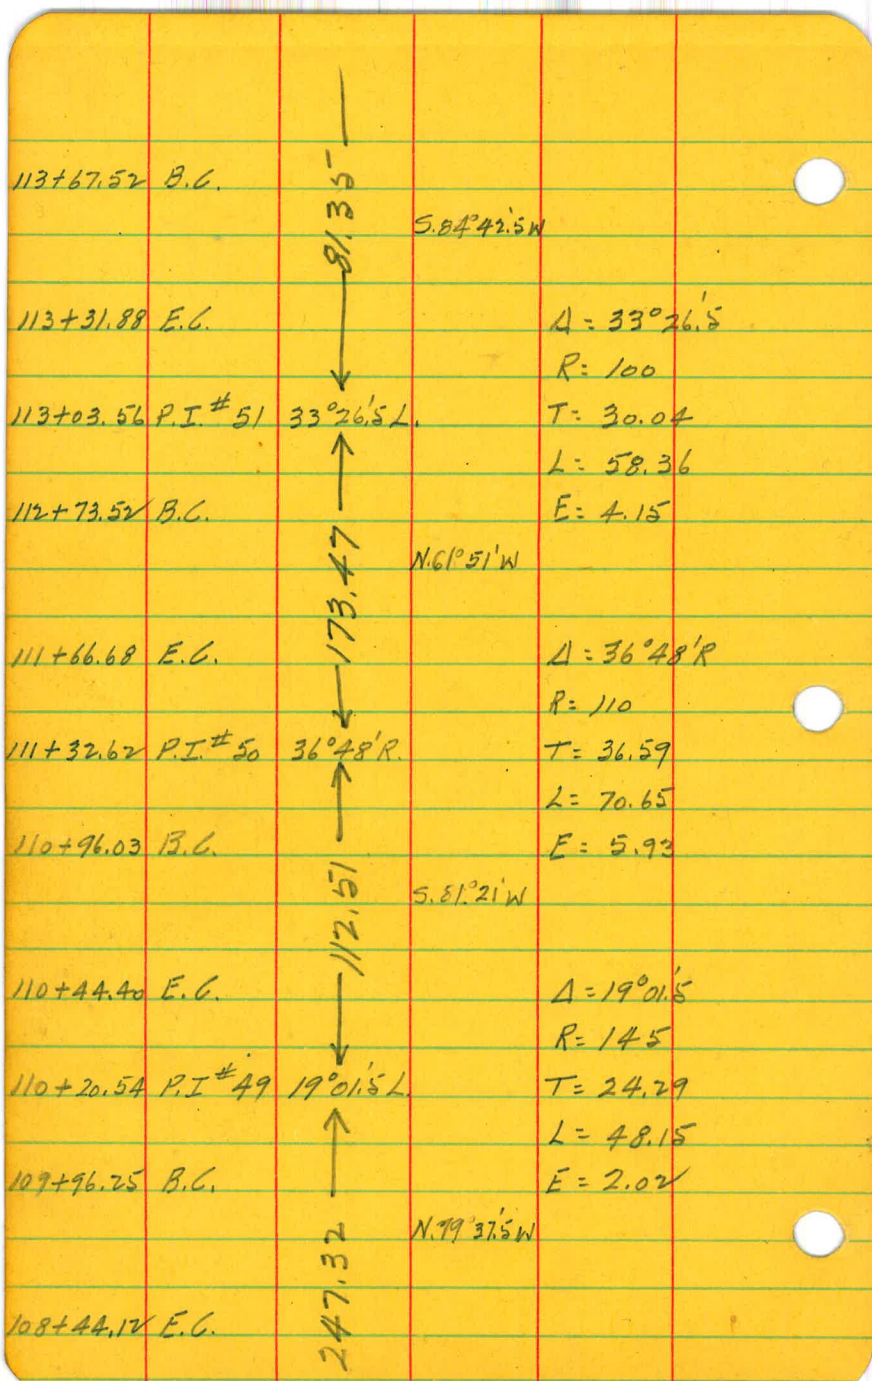 113+67.52 B.C.
81.35
S.84°42'.5W
113+31.88 E.C. Δ = 33°26'.5
R = 100
113+03.56 P.I. # 51 33°26'.5 L. T = 30.04
L = 58.36
112+73.52 B.C. E = 4.15
173.47
N.61°51'W
111+66.68 E.C. Δ = 36°48'R
R = 110
111+32.62 P.I. # 50 36°48'R. T = 36.59
L = 70.65
110+96.03 B.C. E = 5.93
112.51
S.81°21'W
110+44.40 E.C. Δ = 19°01'.5
R = 145
110+20.54 P.I # 49 19°01'.5 L. T = 24.29
L = 48.15
109+96.25 B.C. E = 2.02
247.32
N.79°37'.5W
108+44.12 E.C.